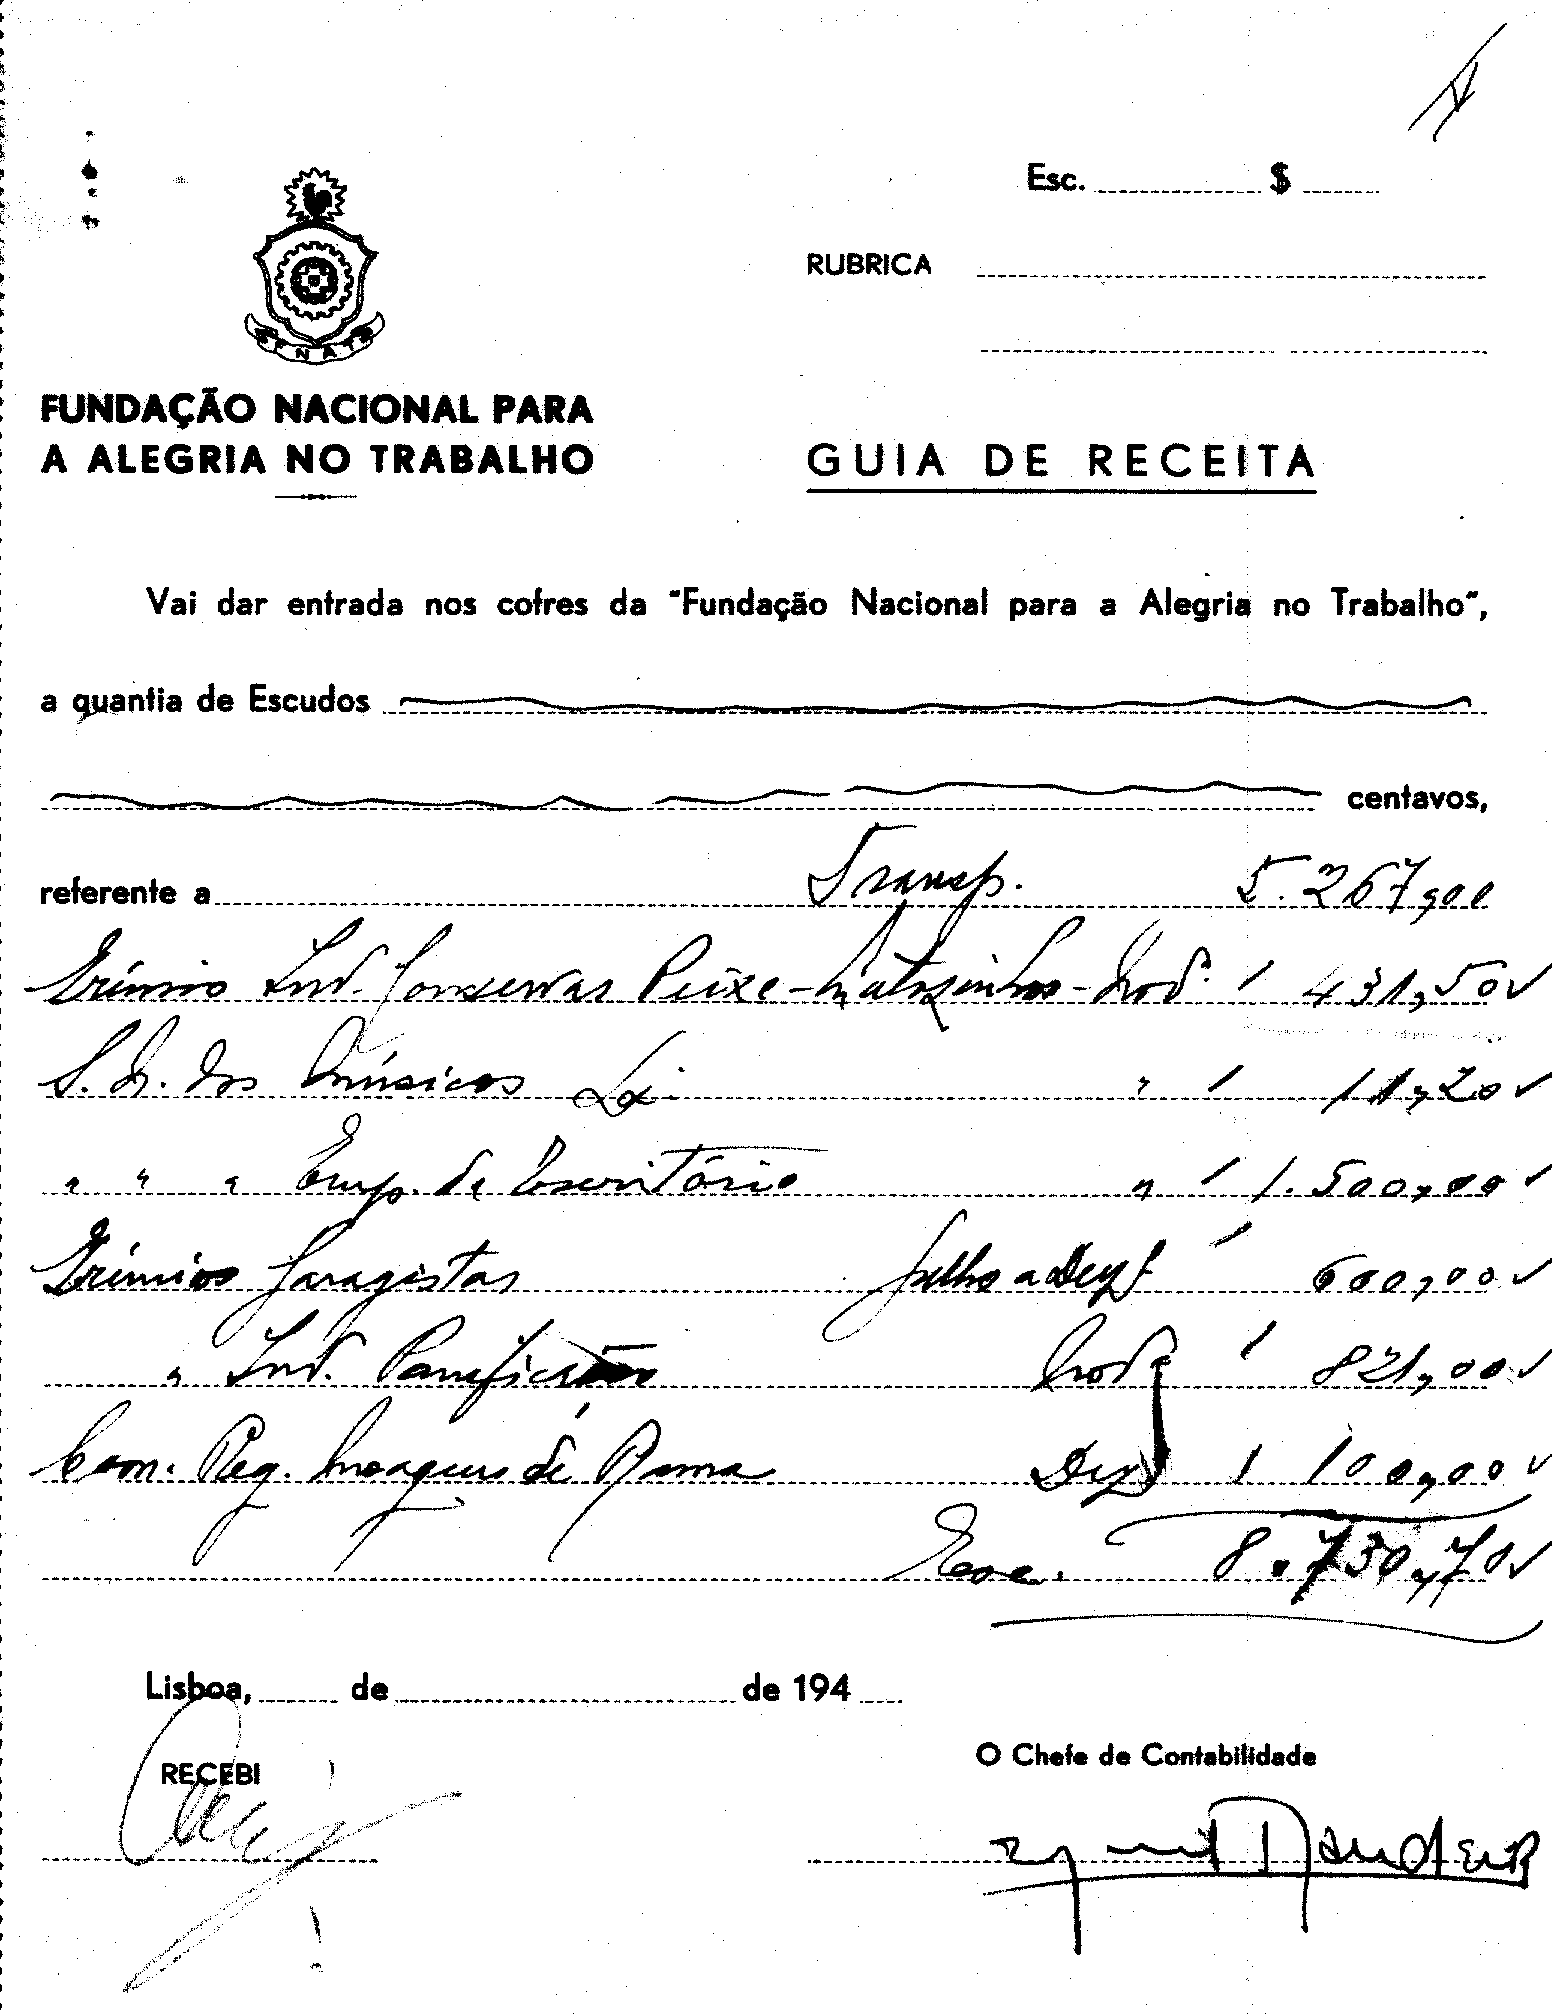 Esc. $
RUBRICA
FNAT
FUNDAÇÃO NACIONAL PARA
A ALEGRIA NO TRABALHO
GUIA DE RECEITA
Vai dar entrada nos cofres da "Fundação Nacional para a Alegria no Trabalho",
a quantia de Escudos
centavos,
referente a Transp. 5.267,00
Grémio Ind. Conservas Peixe - Matozinhos - Novº. 431,50
S. N. dos Músicos 11,20
" " " Emp. de Escritório " 1.500,00
Grémios Garagistas Julho a Dezº 600,00
" Ind. Panificação Novº 821,00
Com. Reg. Moagens de Rama Dezº 100,00
Esc. 8.730,70
Lisboa, de de 194
RECEBI
O Chefe de Contabilidade